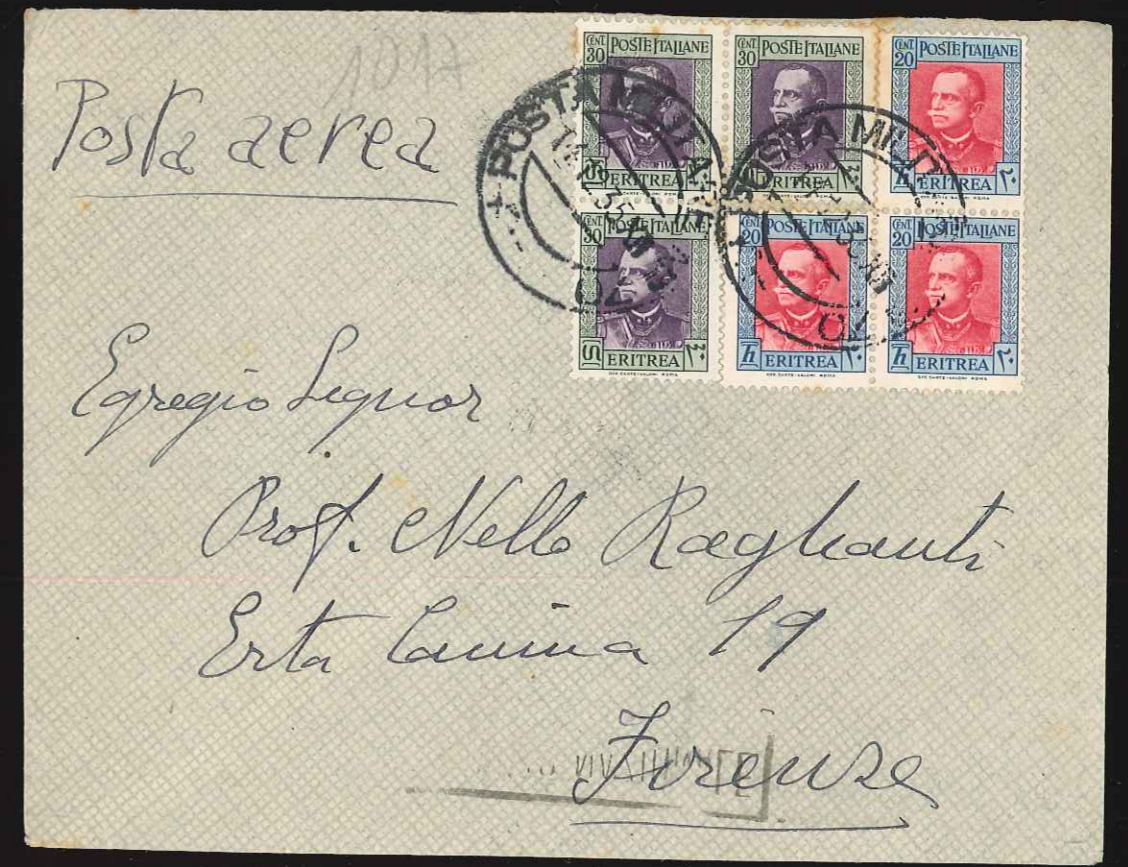 Posta aerea
CENT. 30 POSTE ITALIANE
ERITREA
CENT. 30 POSTE ITALIANE
ERITREA
CENT. 20 POSTE ITALIANE
ERITREA ٢٠
CENT. 30 POSTE ITALIANE
ERITREA ٣٠
CENT. 20 POSTE ITALIANE
ERITREA ٢٠
CENT. 20 POSTE ITALIANE
ERITREA ٢٠
POSTA MILITARE
POSTA MILIT
Egregio Signor
Prof. Nello Raglianti
Erta Canina 19
Firenze